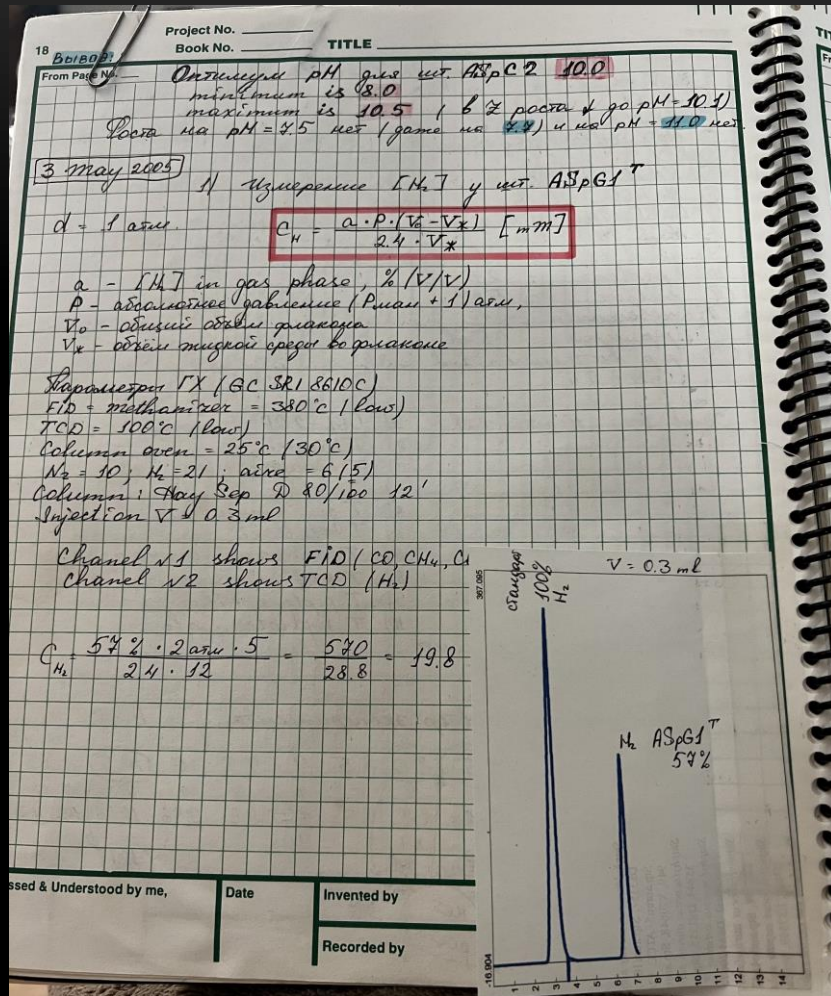 Project No.
18
Book No.
TITLE
Вывод:
From Page No.
Оптимум pH для шт. ASpC2 10.0
minimum is 8.0
maximum is 10.5
Роста на pH = 7.5 нет (даже на 7.7) и на pH = 11.0 нет.
3 may 2005
1) Измерение [H₂] у шт. ASpG1ᵀ
d = 1 атм.
C_H = a · P · (V₀ - Vж) / 2.4 · Vж [mM]
a - [H₂] in gas phase, % (V/V)
P - абсолютное давление (Pман + 1) атм,
V₀ - общий объём флакона
Vж - объём жидкой среды во флаконе
Параметры ГХ (GC SRI 8610C)
FiD - methanizer = 380°c (low)
TCD = 100°c (low)
Column oven = 25°c (30°c)
N₂ = 10; H₂ = 21; = 6 (5)
Column: Hay Sep D 80/100 12'
Injection V = 0.3 ml
Chanel №1 shows FiD (CO, CH₄, C
Chanel №2 shows TCD (H₂)
C_H₂ = 57% · 2 атм · 5 / 2.4 · 12 = 570 / 28.8 = 19.8
V = 0.3 ml
367.095
стандарт
100%
H₂
H₂ ASpG1ᵀ
57%
-16.904
1 2 3 4 5 6 7 8 9 10 11 12 13 14
ssed & Understood by me,
Date
Invented by
Recorded by